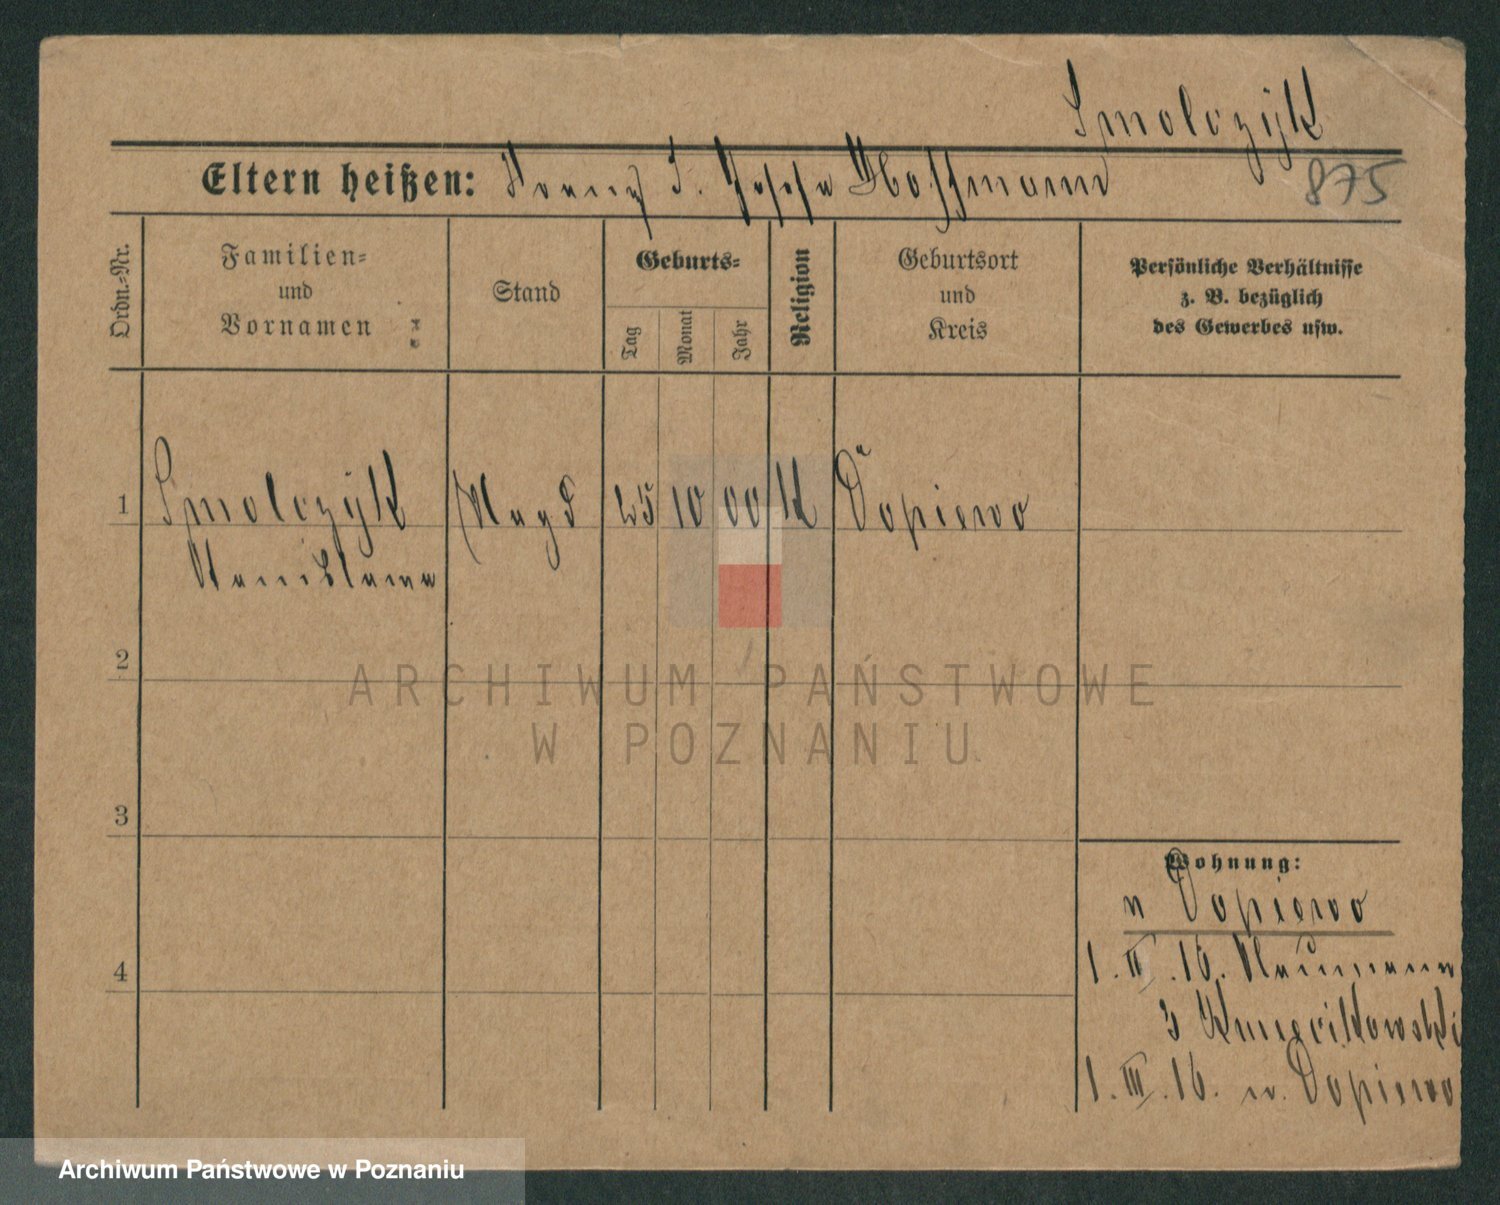 Smolczyk
Eltern heißen: Franz & Josefa Hoffmann
875
Ordn.-Nr.
Familien-
und
Vornamen
Stand
Geburts-
Tag
Monat
Jahr
Religion
Geburtsort
und
Kreis
Persönliche Verhältnisse
z. B. bezüglich
des Gewerbes usw.
1 Smolczyk Magd 25 10 00 K Dopiewo
Stanislawa
2
3
4
Wohnung:
n Dopiewo
1. II. 16. Naumann
3
1. III. 16. n. Dopiewo
ARCHIWUM PAŃSTWOWE
W POZNANIU
Archiwum Państwowe w Poznaniu